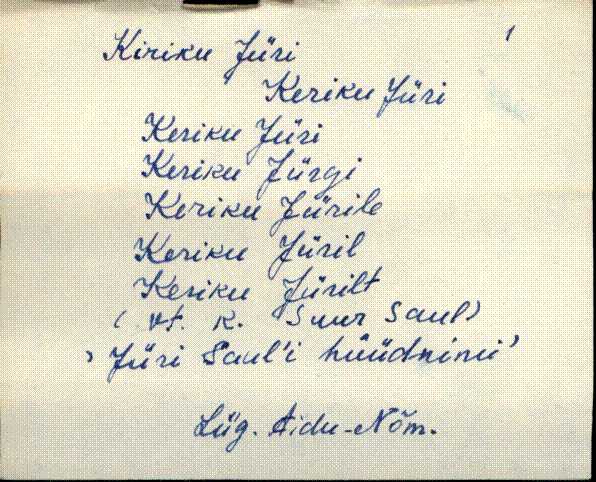 1
Kiriku Jüri
Keriku Jüri
Keriku Jüri
Keriku Jürgi
Keriku Jürile
Keriku Jüril
Keriku Jürilt
( vt. K. Suur Saul)
'Jüri Saul'i hüüdnimi'
Lüg. Aidu-Nõm.